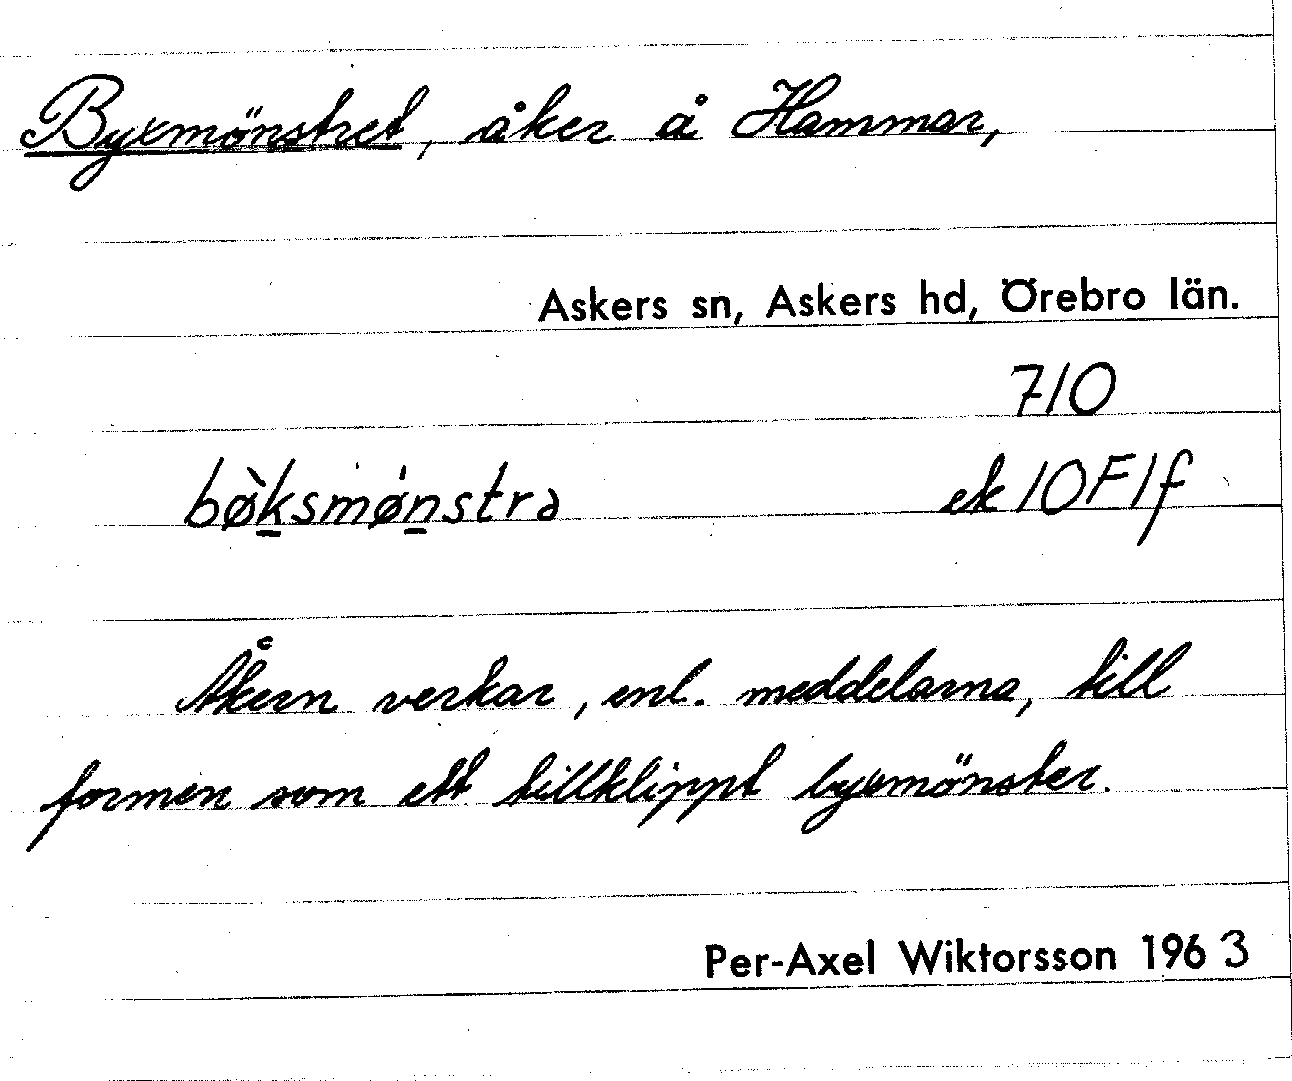 Byxmönstret, åker å Hammar,
Askers sn, Askers hd, Örebro län.
710
bø̀ksmǿnstrə ek 10F1f
Åkern verkar, enl. meddelarna, till
formen som ett tillklippt byxmönster.
Per-Axel Wiktorsson 1963